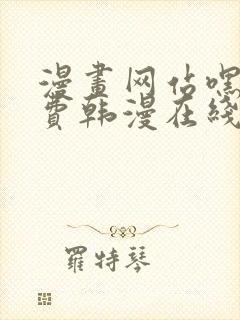 漫畫网站嘿
費韩漫在綫
羅特琴